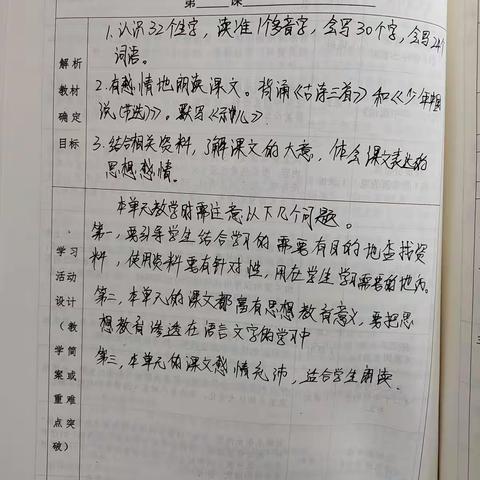 第 课
1.认识32个生字，读准1个多音字，会写30个字，会写24个
词语。
解析
教材
确定
目标
2.有感情地朗读课文。背诵《古诗三首》和《少年中国
说(节选)》。默写《示儿》。
3.结合相关资料，了解课文的大意，体会课文表达的
思想感情。
学习
活动
设计
（教
学简
案或
重难
点突
破）
本单元教学时需注意以下几个问题。
第一，要引导学生结合学习的需要有目的地查找资
料，使用资料要有针对性，用在学生学习需要的地方。
第二，本单元的课文都富有思想教育意义，要把思
想教育渗透在语言文字的学习中
第三，本单元的课文感情充沛，适合学生朗读.